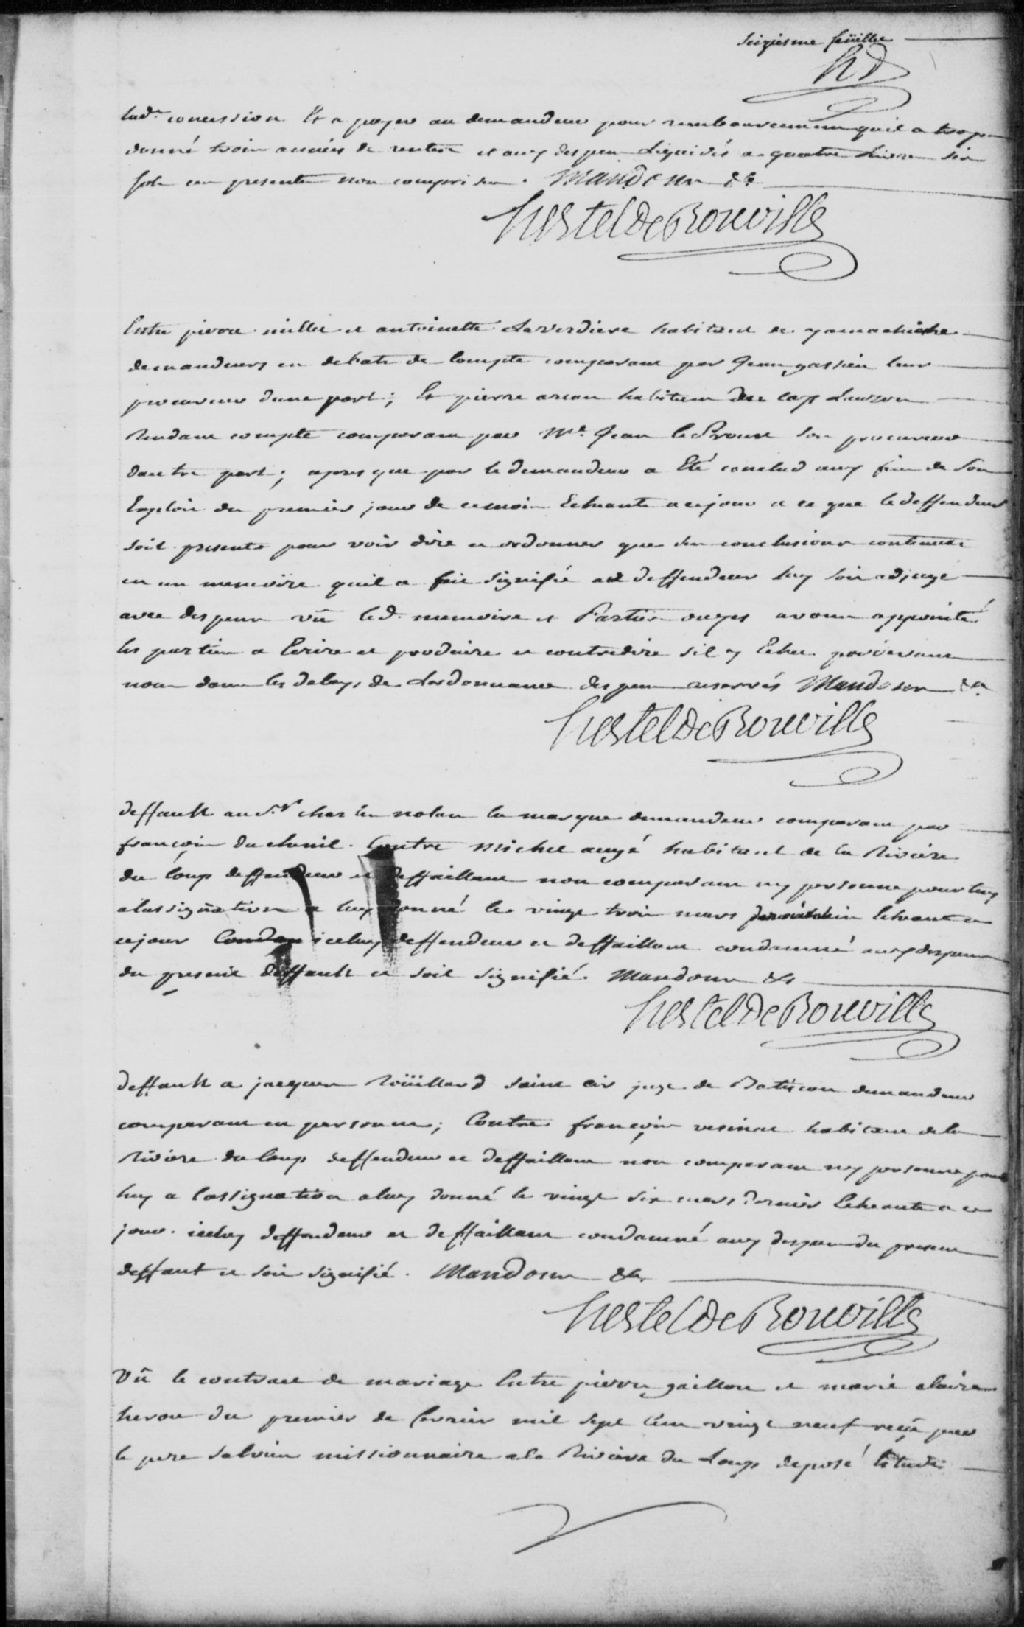 seizieme feüillet
hd
lad. concession Et a payer au demandeur pour remboursement quil a trop
donné trois années de rentes et aux depens Liquidés a quatre Livres six
sols ces presentes non comprises. Mandons &a
hertel De Rouville
Entre pierre millet et antoinette Laverdiere habitant de yamachiche
demandeurs en debats de Compte comparant par Jean gassien leur
procureur dune part; Et pierre arcan habitant du cap Lauzon
Rendant compte comparant par Me. Jean le Proust son procureur
dautre part; apres que par le demandeur a Eté conclud aux fins de son
Exploit du premier jour de ce mois Echeante a ce jour a ce que le deffendeur
soit present pour voir dire et ordonner que ses conclusions contenues
en un memoire quil a fait signifié au deffendeur luy soit adjugé
avec depens vû led. memoire et Parties ouyes avons appointé
les parties a Ecrire et produire et contredire sil y Echet pardevant
nous dans les delays de Lordonnance depens reservés Mandons &a
hertel De Rouville
deffault au Sr. charles nolan la marque demandeur comparant par
françois duclonil. Contre michel augé habitant de la Riviére
du loup deffendeur et deffaillant non comparant ny personne pour luy
a lassignation a luy donné le vingt trois mars Echeante a
ce jour iceluy deffendeur et deffaillant condamné aux depens
du present deffault et soit signifié. Mandons &a
hertel De Rouville
deffault a jacques Roüillard saint cir juge de Batiscan demandeur
comparant en personne; Contre françois vesinat habitant de la
Riviere du loup deffendeur et deffaillant non comparant ny personne pour
luy a lassignation a luy donné le vingt six mars dernier Echeante a ce
jour. iceluy deffendeur et deffaillant condamné aux depens du present
deffaut et soit signifié. Mandons &a
hertel De Rouville
Vû le contract de mariage Entre pierre gaillou et marie claire
herou du premier de fevrier mil sept cent vingt neuf recû par
le pere salvien missionnaire a la Riviere du Loup deposé